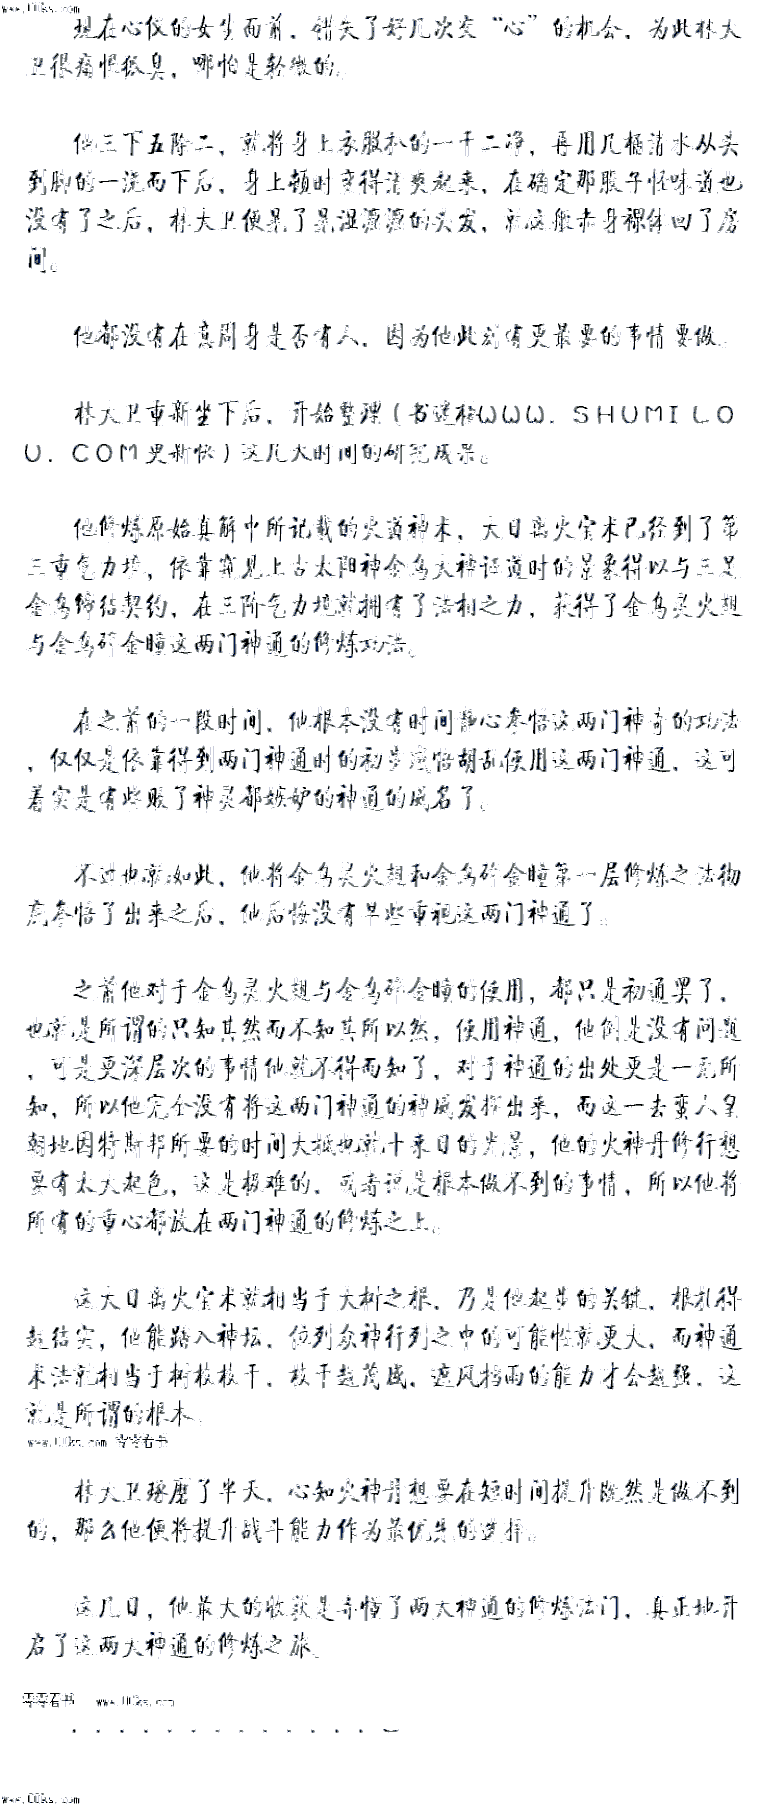 www.00ks.com
现在心仪的女生面前，错失了好几次交“心”的机会，为此林大
卫很痛恨狐臭，哪怕是轻微的。
他三下五除二，就将身上衣服扒的一干二净，再用几桶清水从头
到脚的一浇而下后，身上顿时变得清爽起来，在确定那股子怪味道也
没有了之后，林大卫便晃了晃湿漉漉的头发，就这般赤身裸体回了房
间。
他都没有在意周身是否有人，因为他此刻有更最要的事情要做。
林大卫重新坐下后，开始整理（书迷楼WWW．SHUMILO
U．COM更新快）这几天时间的研究成果。
他修炼原始真解中所记载的火道神术，大日离火宝术已经到了第
三重气力境，依靠窥见上古太阳神金乌大神证道时的景象得以与三足
金乌缔结契约，在三阶气力境就拥有了法相之力，获得了金乌灵火翅
与金乌碎金瞳这两门神通的修炼功法。
在之前的一段时间，他根本没有时间静心参悟这两门神奇的功法
，仅仅是依靠得到两门神通时的初步感悟胡乱使用这两门神通，这可
着实是有些贬了神灵都嫉妒的神通的威名了。
不过也就如此，他将金乌灵火翅和金乌碎金瞳第一层修炼之法彻
底参悟了出来之后，他后悔没有早些重视这两门神通了。
之前他对于金乌灵火翅与金乌碎金瞳的使用，都只是初通罢了，
也就是所谓的只知其然而不知其所以然，使用神通，他倒是没有问题
，可是更深层次的事情他就不得而知了，对于神通的出处更是一无所
知，所以他完全没有将这两门神通的神威发挥出来，而这一去蛮人皇
朝地因特斯邦所要的时间大抵也就十来日的光景，他的火神丹修行想
要有太大起色，这是极难的，或者说是根本做不到的事情，所以他将
所有的重心都放在两门神通的修炼之上。
这大日离火宝术就相当于大树之根，乃是他起步的关键，根扎得
越结实，他能踏入神坛，位列众神行列之中的可能性就更大，而神通
术法就相当于树枝枝干，枝干越茂盛，遮风挡雨的能力才会越强，这
就是所谓的根本。
www.00ks.com 零零看书
林大卫琢磨了半天，心知火神丹想要在短时间提升既然是做不到
的，那么他便将提升战斗能力作为最优先的选择。
这几日，他最大的收获是弄懂了两大神通的修炼法门，真正地开
启了这两大神通的修炼之旅。
零零看书 www.00ks.com
www.00ks.com